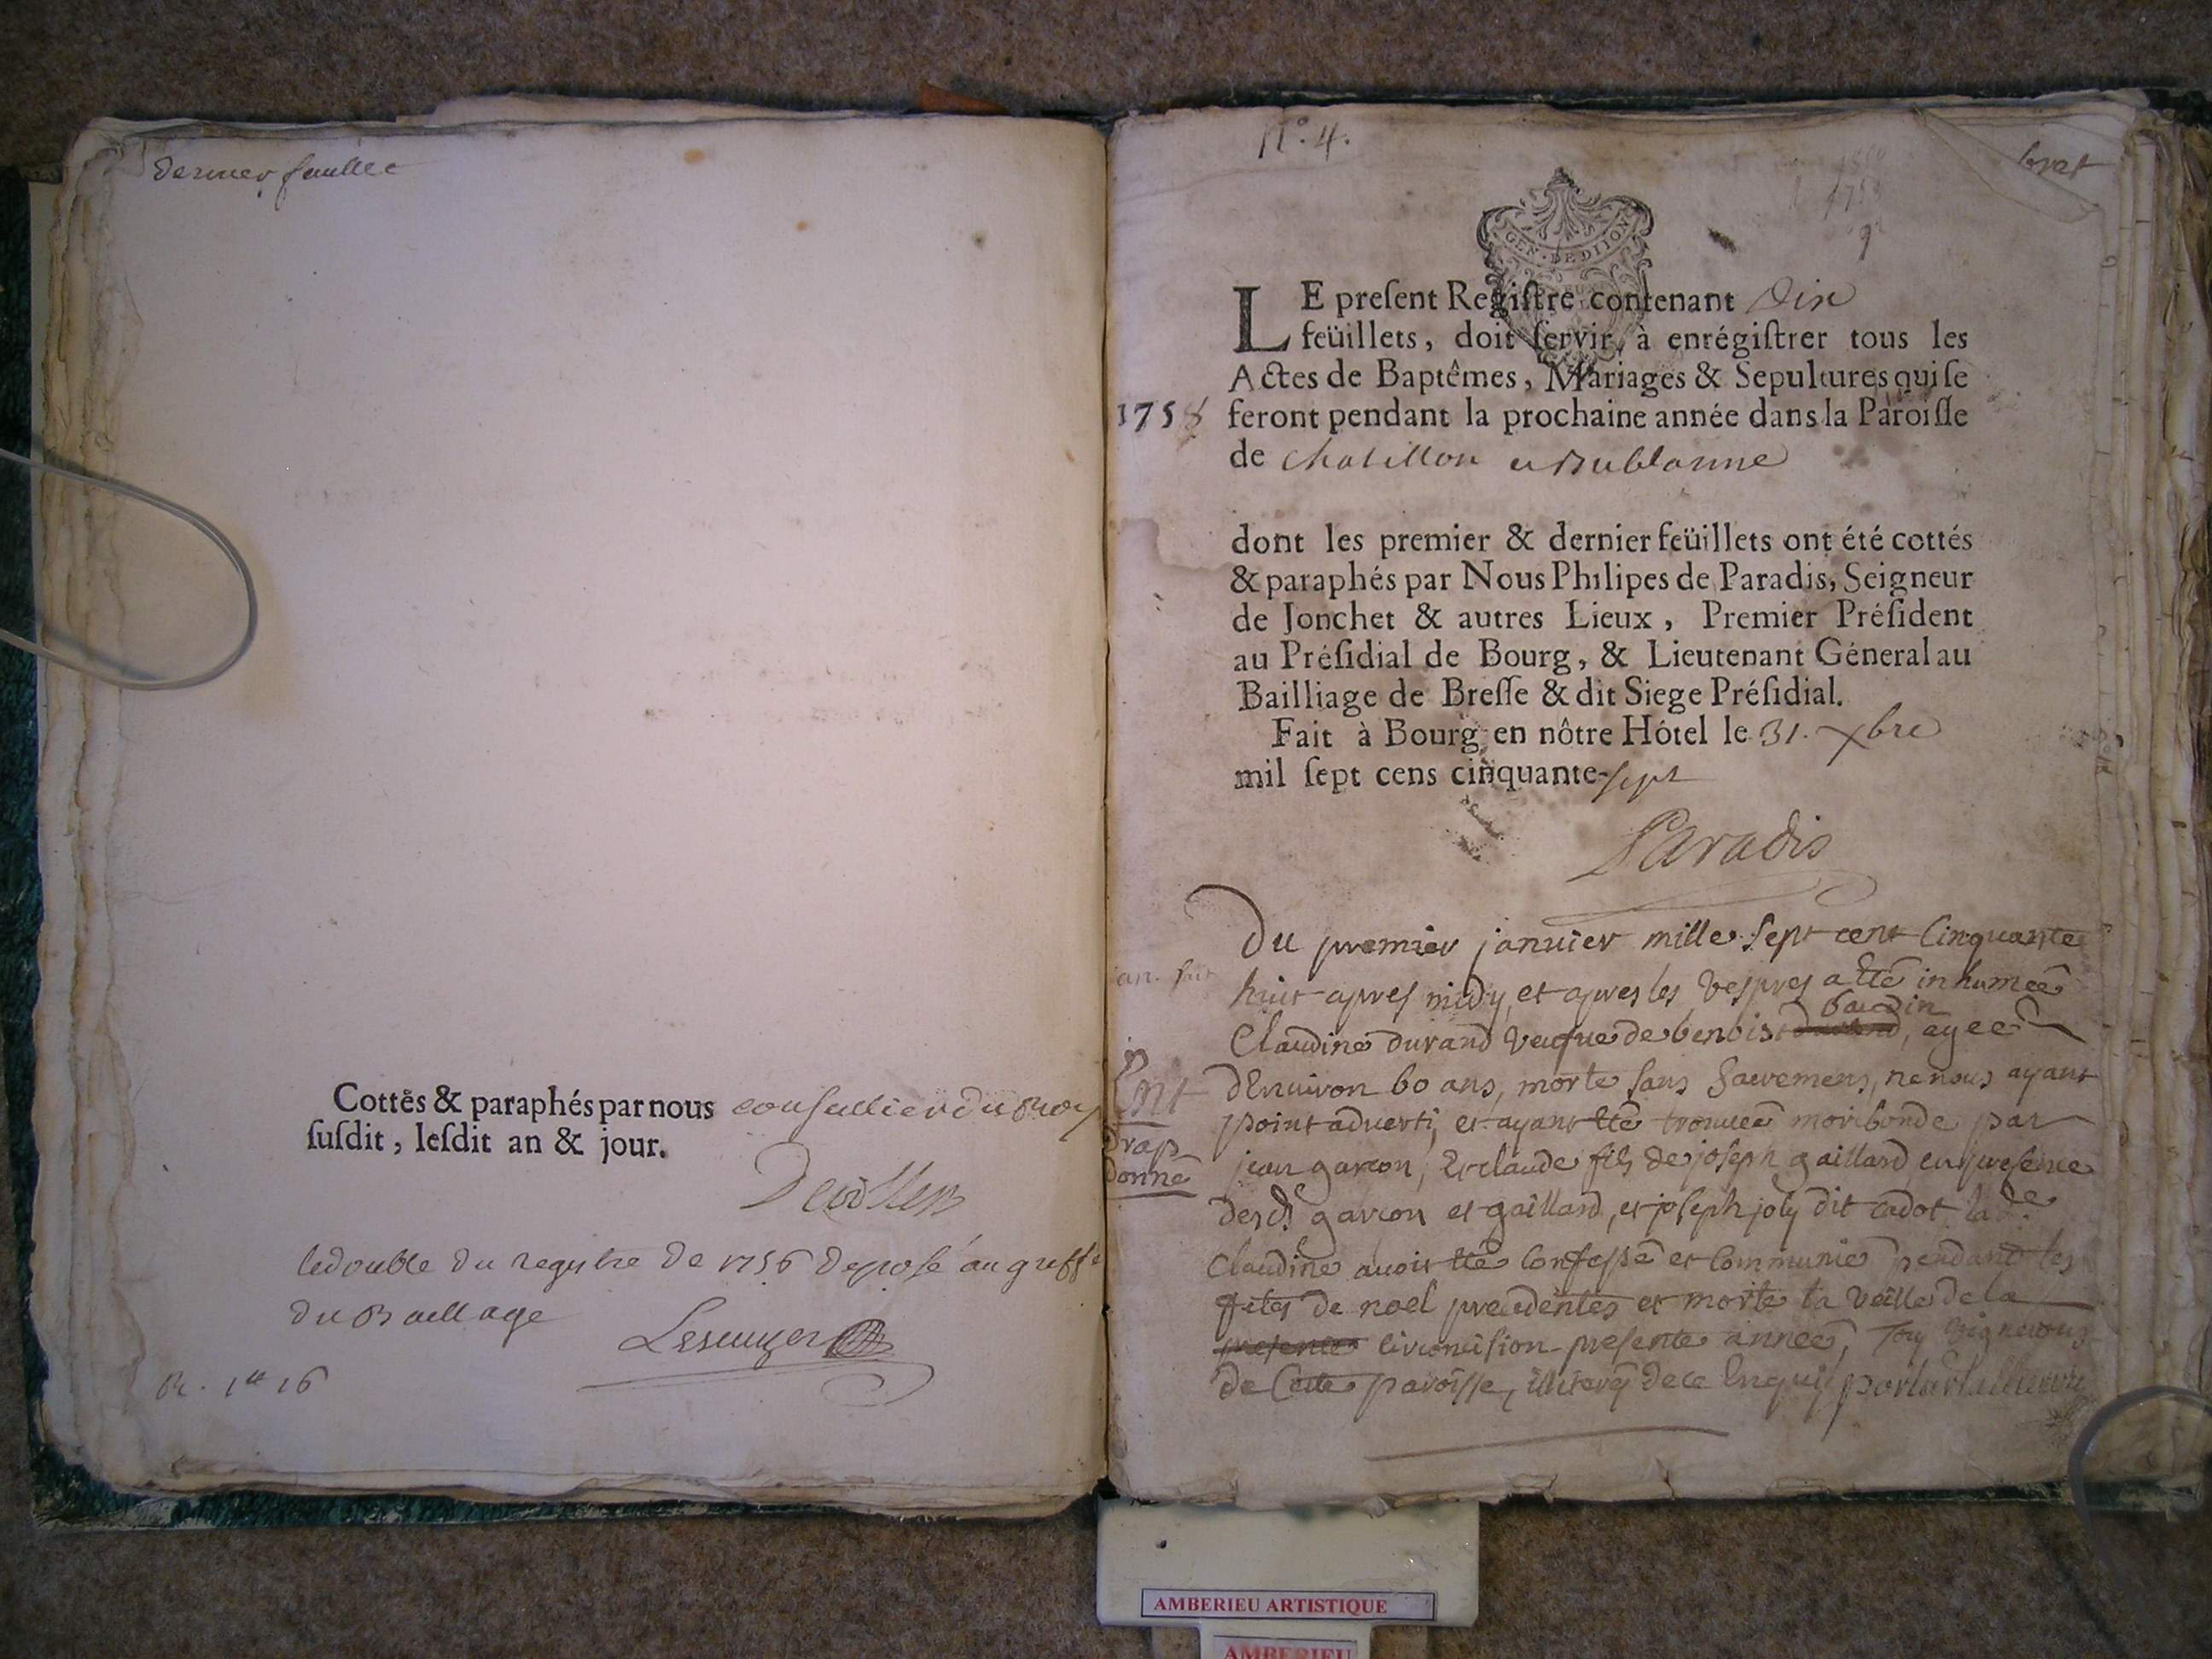 dernier feuillet
Cottés & paraphés par nous conseillier du Roy
susdit, lesdit an & jour.
le double du registre de 1756 deposé au greffe
du Baillage
R. 1tt 16
N°. 4.
GEN. DE DIION
LE present Registre contenant Dix
feüillets, doit servir à enrégistrer tous les
Actes de Baptêmes, Mariages & Sepultures qui se
1758 feront pendant la prochaine année dans la Paroisse
de Chatillon
dont les premier & dernier feüillets ont été cottés
& paraphés par Nous Philipes de Paradis, Seigneur
de Jonchet & autres Lieux, Premier Président
au Présidial de Bourg, & Lieutenant Géneral au
Bailliage de Bresse & dit Siege Présidial.
Fait à Bourg en nôtre Hôtel le 31. Xbre
mil sept cens cinquante-sept
Paradis
Du premier janvier mille sept cent cinquante
huit apres midy, et apres les vespres a ete inhumee
baudin
Claudine durand veufue de benoist, agee
Ent
denuiron 60 ans, morte sans sacremens, ne nous ayant
drap
point aduerti, et ayant ete trouuee moribonde par
donné
jean garcon, et claude fils de joseph gaillard, en presence
desd. garcon et gaillard, et joseph joly dit cadot lade
Claudine auoit ete confesse et communie pendant les
fetes de noel precedentes et morte la veille de la
presente circoncision presente annee, tous vignerons
de cette paroisse, illiterés de ce enquis
AMBERIEU ARTISTIQUE
AMBERIEU